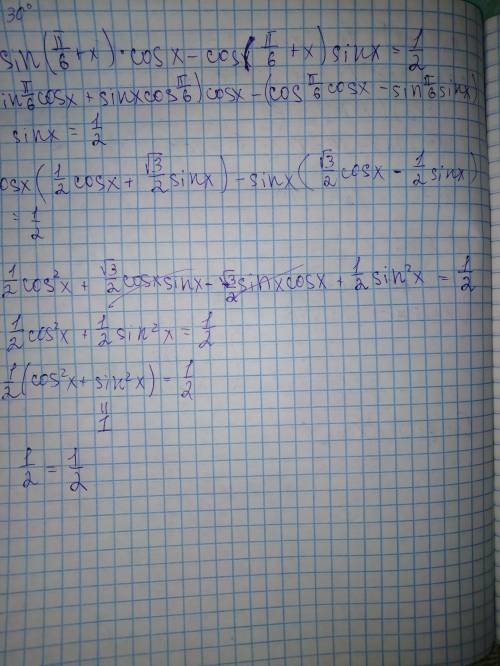 30°
sin(π/6 + x) · cos x - cos(π/6 + x) sin x = 1/2
in π/6 cos x + sin x cos π/6) cos x - (cos π/6 cos x - sin π/6 sin x)
sin x = 1/2
os x (1/2 cos x + √3/2 sin x) - sin x (√3/2 cos x - 1/2 sin x)
= 1/2
1/2 cos²x + √3/2 cos x sin x - √3/2 sin x cos x + 1/2 sin²x = 1/2
1/2 cos²x + 1/2 sin²x = 1/2
1/2 (cos²x + sin²x) = 1/2
=
1
1/2 = 1/2